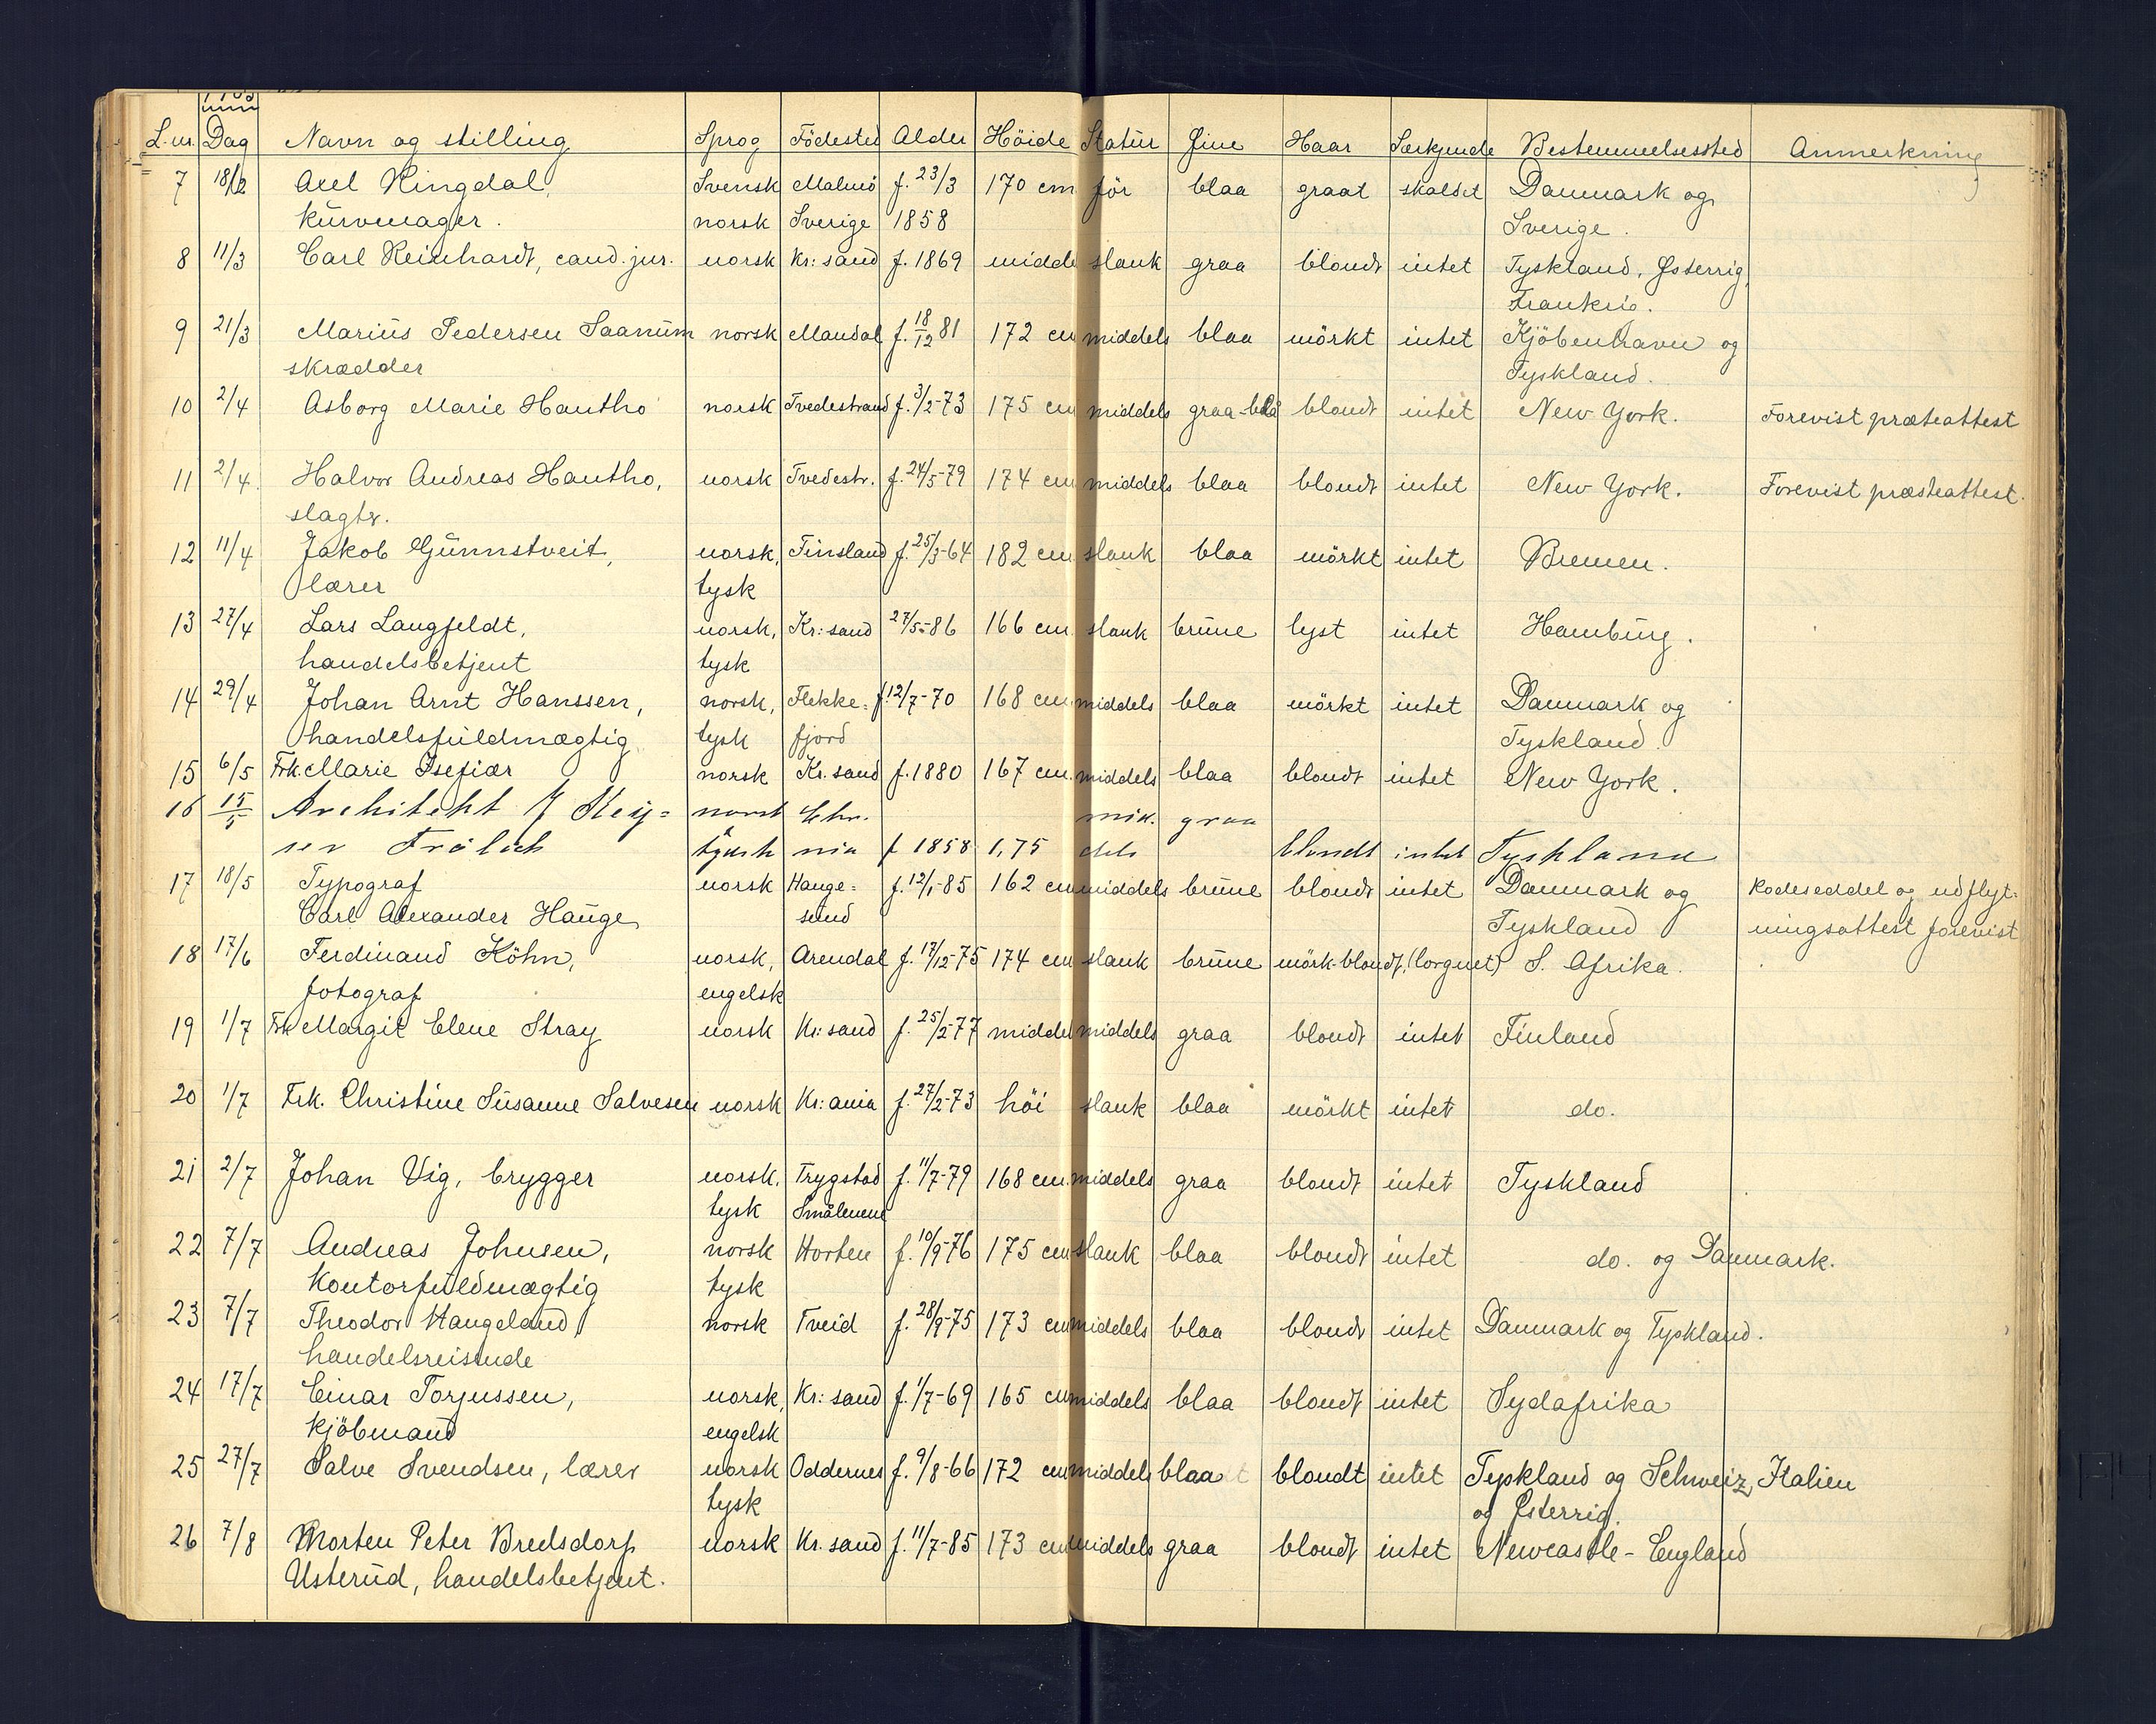 L.nr. Dag Navn og stilling Sprog Födested Alder Höide Statur Øine Haar Særkjende Bestemmelsessted Anmerkning
7 18/2 Axel Ringdal, Svensk Malmö f. 23/3 170 cm för blaa graat skaldet Danmark og
kurvmager. norsk Sverige 1858 Sverige.
8 11/3 Carl Reinhardt, cand. jur. norsk Kr: sand f. 1869 middels slank graa blondt intet Tyskland, Østerrig,
Frankrig.
9 21/3 Marius Pedersen Saanum norsk Mandal f. 18/12 81 172 cm middels blaa mörkt intet Kjöbenhavn og
skrædder Tyskland.
10 2/4 Asborg Marie Hantho norsk Tvedestrand f. 3/2-73 175 cm middels graa-blå blondt intet New York. Forevist præsteattest
11 2/4 Halvor Andreas Hantho, norsk Tvedestr. f. 24/5-79 174 cm middels blaa blondt intet New York. Forevist præsteattest.
slagter.
12 11/4 Jakob Gunnstveit, norsk, Finsland f. 25/3-64 182 cm slank blaa mörkt intet Bremen.
lærer tysk
13 27/4 Lars Langfeldt, norsk, Kr: sand 27/5-86 166 cm slank brune lyst intet Hamburg.
handelsbetjent tysk
14 29/4 Johan Arnt Hanssen, norsk, Flekke= f 12/7-70 168 cm middels blaa mörkt intet Danmark og
handelsfuldmægtig tysk fjord Tyskland.
15 6/5 Frk. Marie Isefiær norsk Kr. sand f. 1880 167 cm. middels blaa blondt intet New York.
16 15/5 Architekt J Key= norsk Chr. mid. graa
ser Frölich tysk nia f 1858 1,75 dels blondt intet Tyskland
17 18/5 Typograf norsk Hauge= f. 12/1-85 162 cm middels brune blondt intet Danmark og Rodeseddel og udflyt-
Carl Alexander Hauge sund Tyskland ningsattest forevist
18 17/6 Ferdinand Köhn, norsk, Arendal f. 17/12-75 174 cm slank brune mörk-blondt, (lorgnet) S. Afrika.
fotograf engelsk
19 1/7 Frk Margit Elene Stray norsk Kr: sand f. 25/2-77 middel middels graa blondt intet Finland
20 1/7 Frk. Christine Susanne Salvesen norsk Kr: ania f. 27/2-73 höi slank blaa mörkt intet do.
21 2/7 Johan Vig, brygger norsk, Trygstad f. 11/7-79 168 cm. middels graa blondt intet Tyskland
tysk Smålenene
22 7/7 Andreas Johnsen, norsk Horten f. 10/9-76 175 cm slank blaa blondt intet do. og Danmark.
kontorfuldmægtig tysk
23 7/7 Theodor Haugeland, norsk Tveid f. 28/9-75 173 cm middels blaa blondt intet Danmark og Tyskland.
handelsreisende
24 17/7 Einar Torjussen, norsk, Kr: sand f. 1/7-69 165 cm middels blaa blondt intet Sydafrika
kjöbmand engelsk
25 27/7 Salve Svendsen, lærer norsk Oddernes f. 9/8-66 172 cm middels blaa blondt intet Tyskland og Schweiz, Italien
tysk og Østerrig.
26 7/8 Morten Peter Bredsdorf norsk Kr. sand f. 11/7-85 173 cm middels graa blondt intet Newcastle - England
Usterud, handelsbetjent.